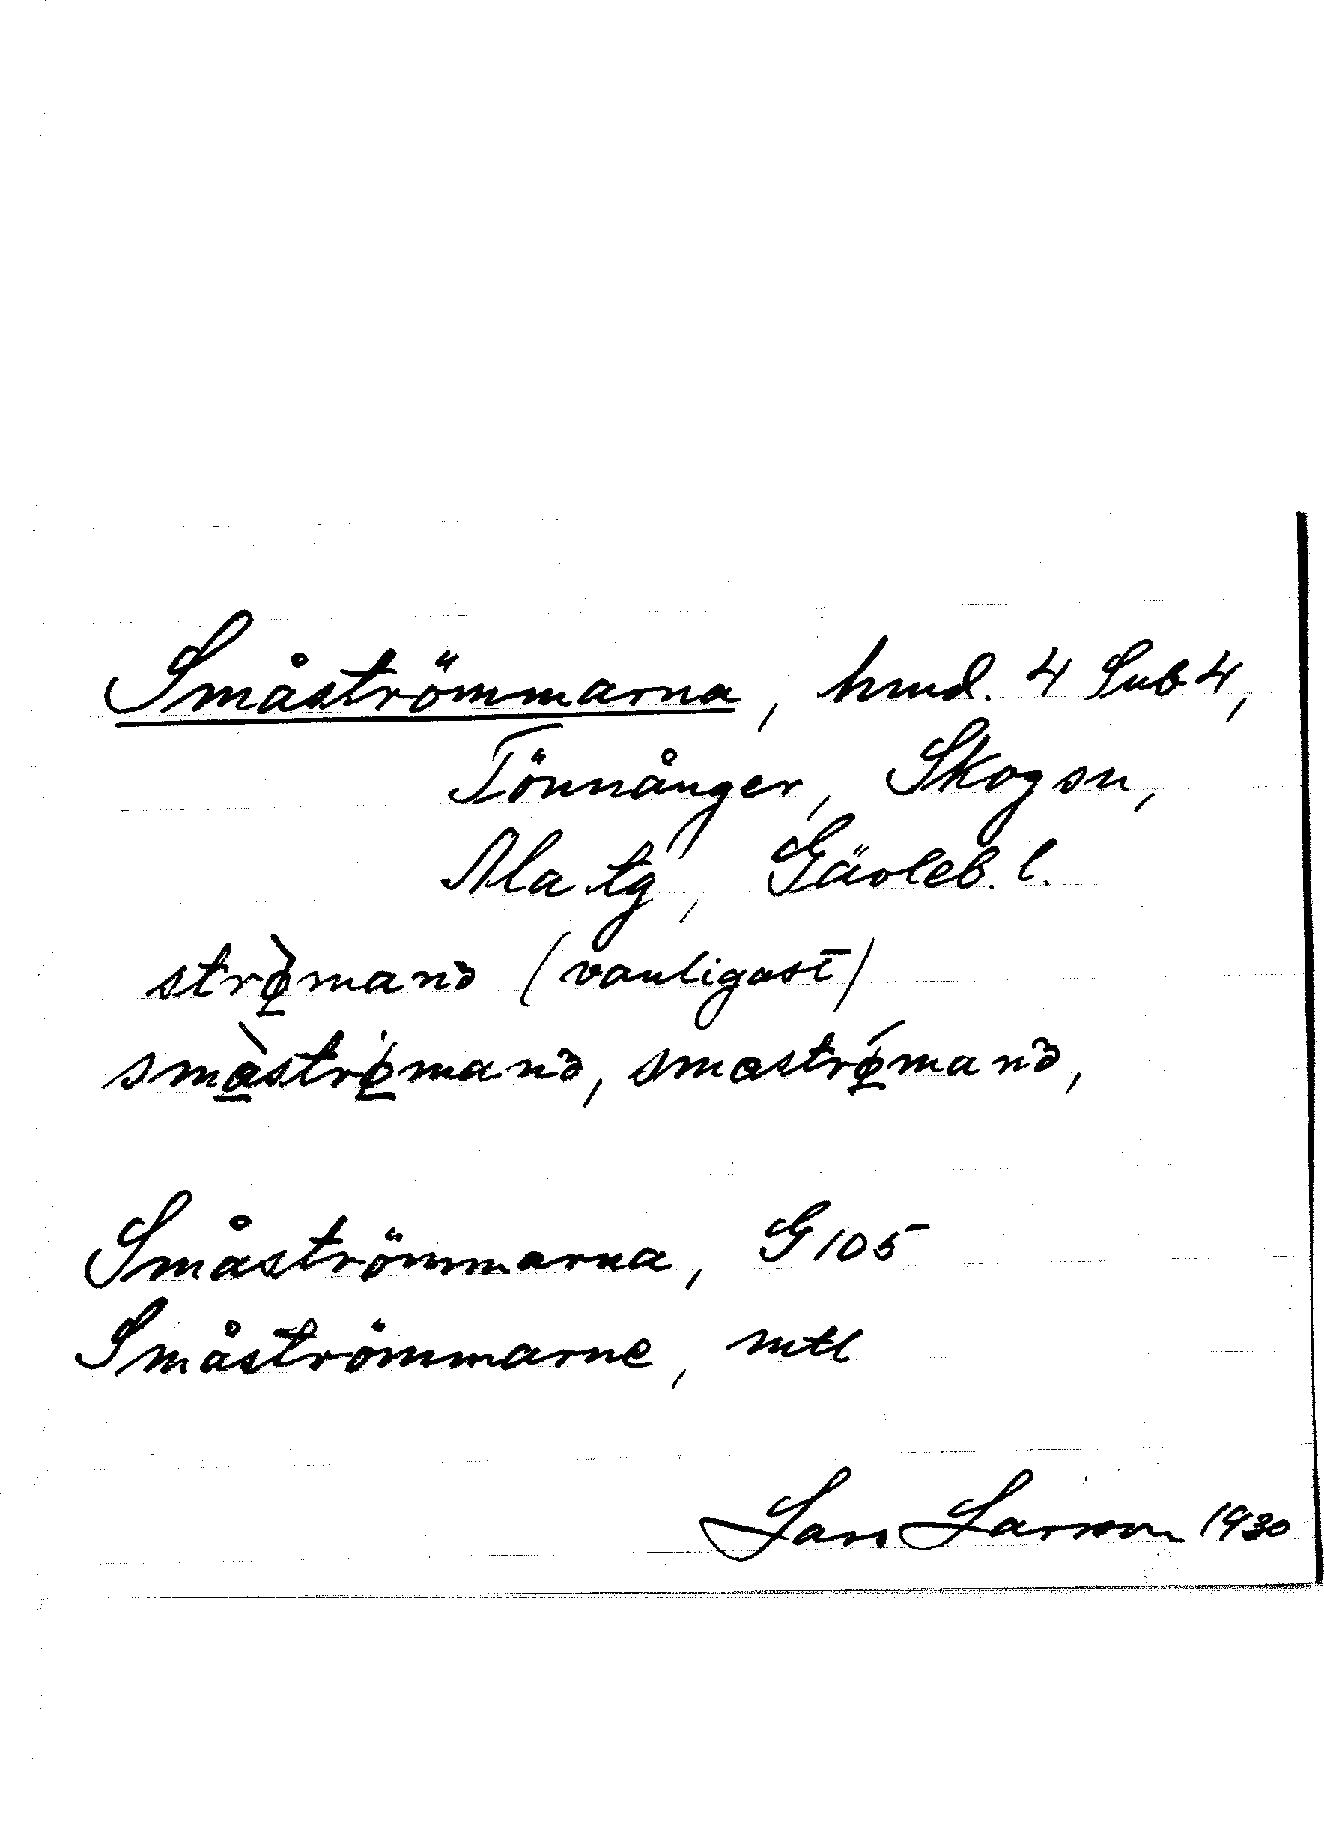 Småströmmarna, hmd. 4 Sub 4,
Tönnånger, Skog sn,
Ala tg, Gävleb. l.
strø̀manə (vanligast)
smɑ̀strø̣manə, smɑstrǿmanə,
Småströmmarna, G 105
Småströmmarne, mtl
Lars Larsson 1930